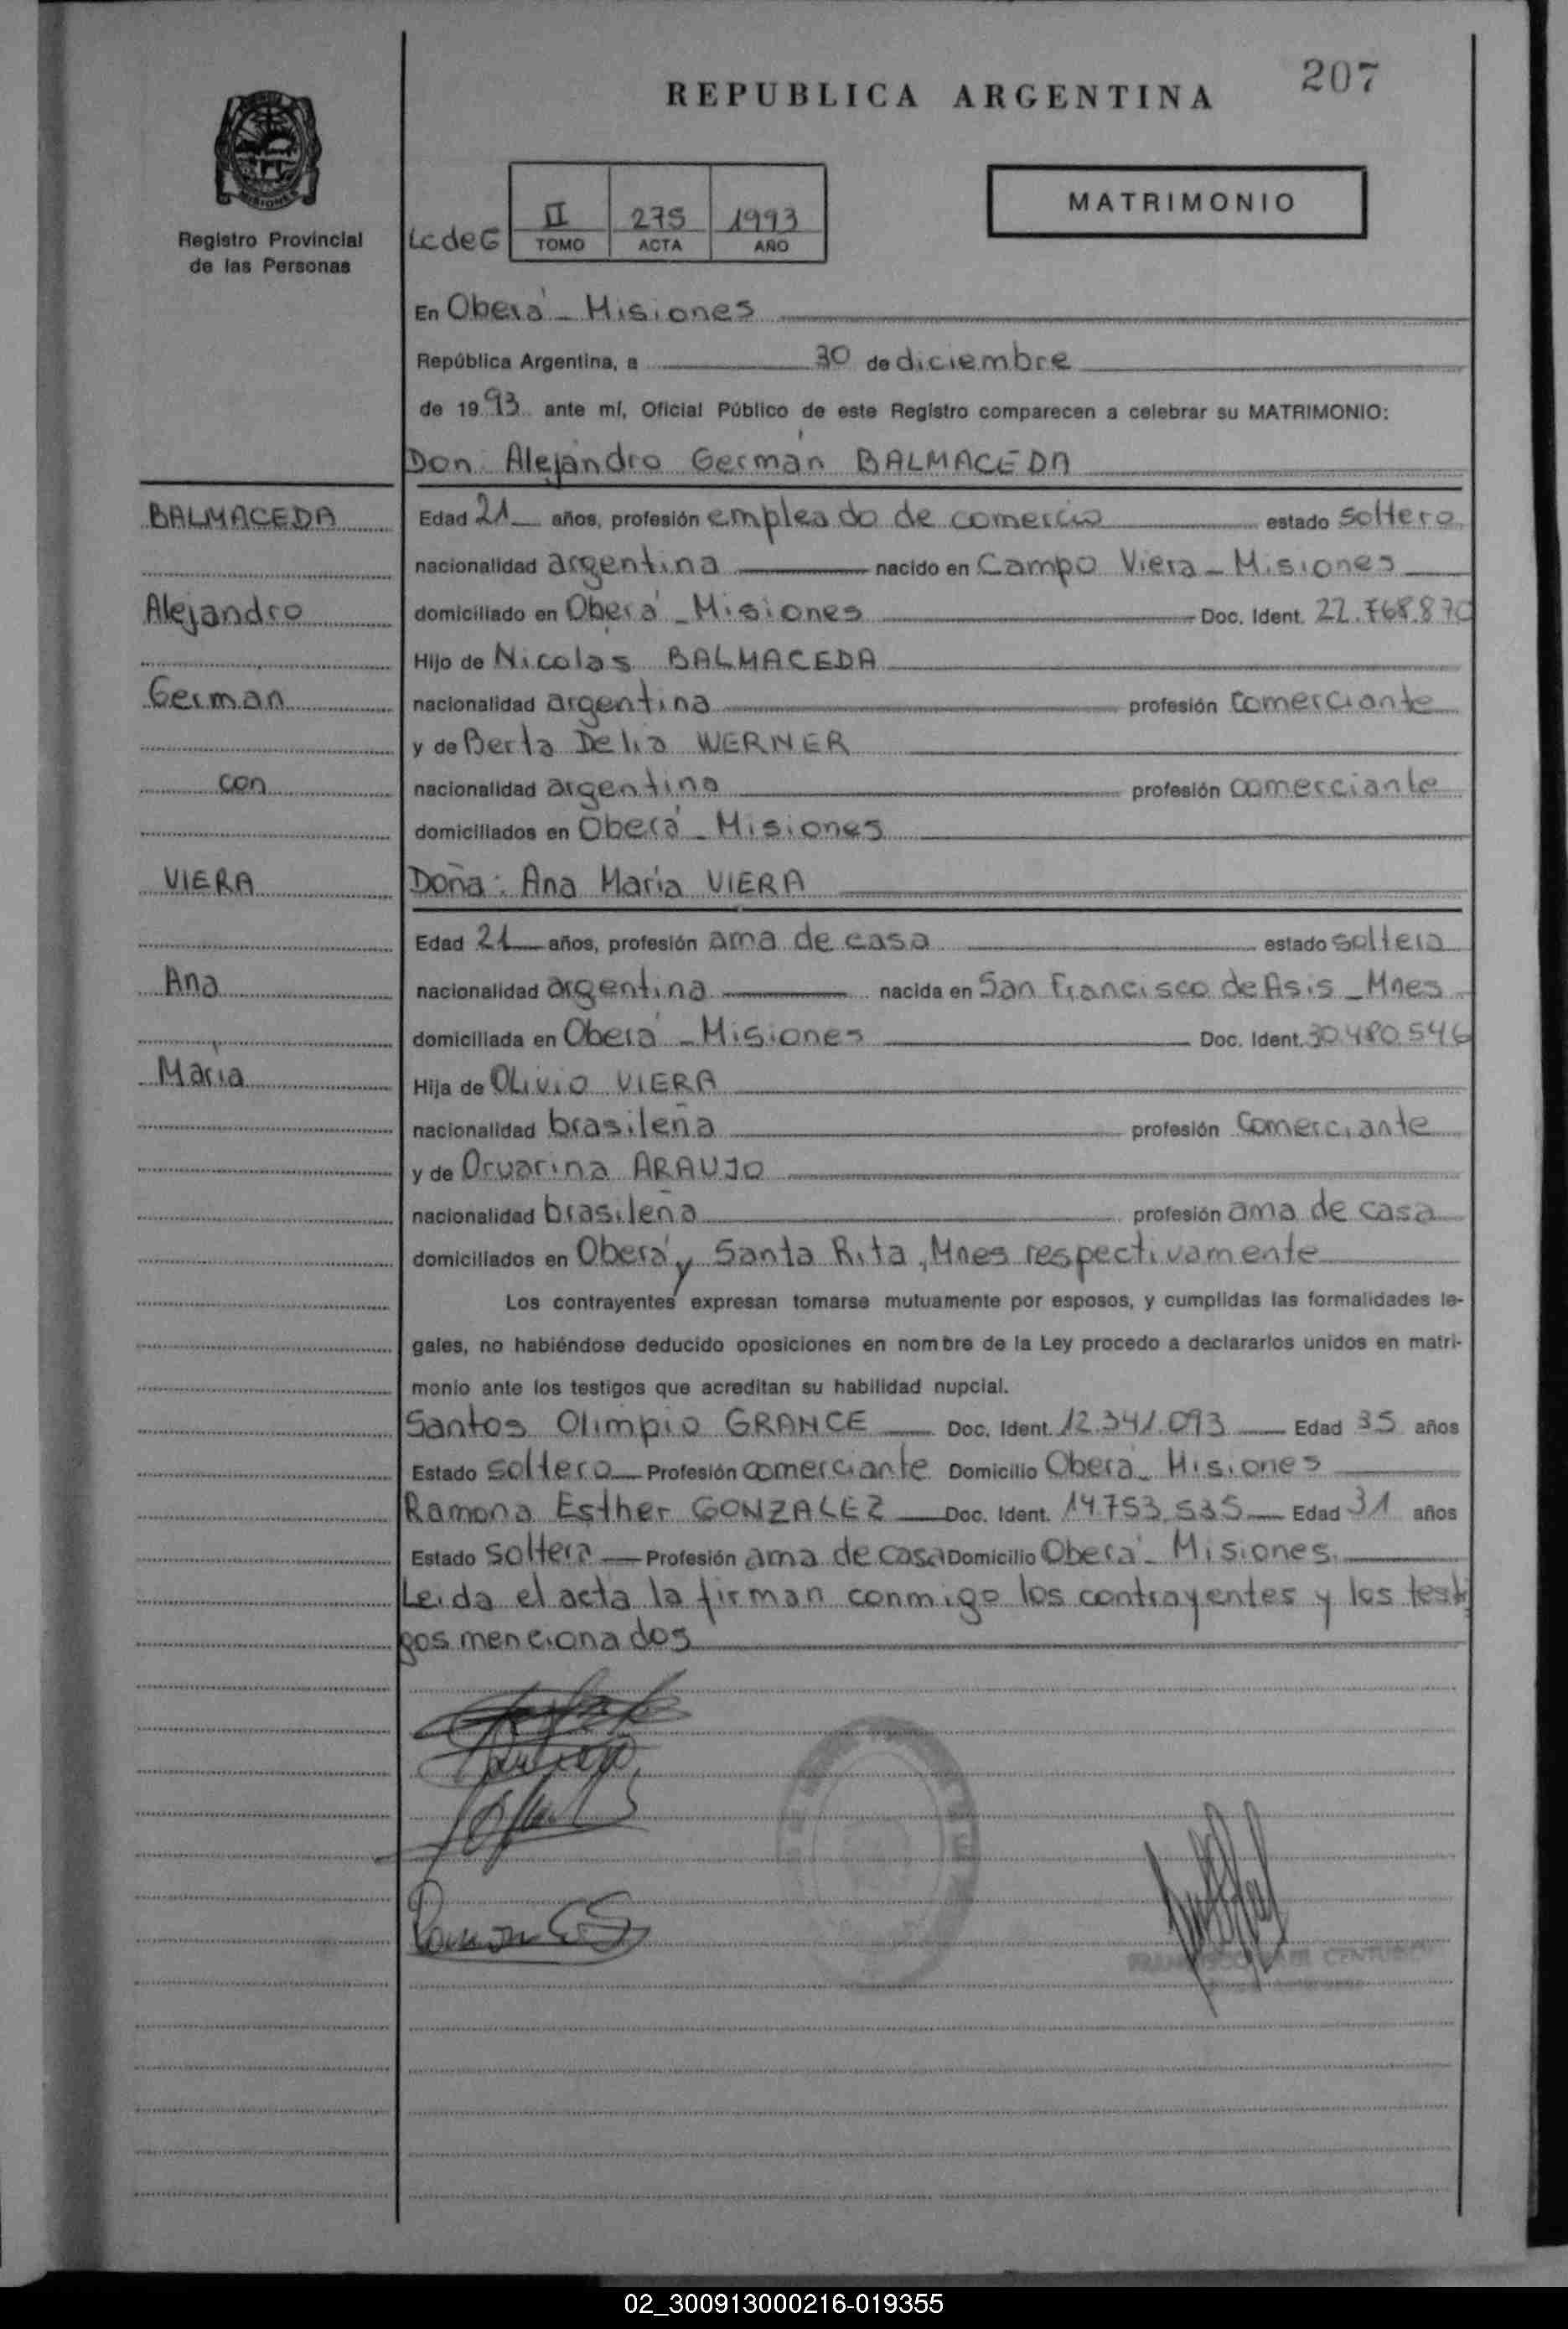 207
REPUBLICA ARGENTINA
MATRIMONIO
Registro Provincial
de las Personas
LcdeG
II 275 1993
TOMO ACTA AÑO
En Oberá - Misiones
República Argentina, a 30 de diciembre
de 1993 ante mí, Oficial Público de este Registro comparecen a celebrar su MATRIMONIO:
Don: Alejandro Germán BALMACEDA
BALMACEDA
Alejandro
German
con
VIERA
Ana
María
Edad 21 años, profesión empleado de comercio estado soltero
nacionalidad argentina nacido en Campo Viera - Misiones
domiciliado en Oberá - Misiones Doc. Ident. 22.768.870
Hijo de Nicolás BALMACEDA
nacionalidad argentina profesión comerciante
y de Berta Delia WERNER
nacionalidad argentina profesión comerciante
domiciliados en Oberá - Misiones
Doña: Ana María VIERA
Edad 21 años, profesión ama de casa estado soltera
nacionalidad argentina nacida en San Francisco de Asis - Mnes
domiciliada en Oberá - Misiones Doc. Ident. 30.480.546
Hija de OLIVIO VIERA
nacionalidad brasileña profesión Comerciante
y de Orvarina ARAUJO
nacionalidad brasileña profesión ama de casa
domiciliados en Oberá y Santa Rita, Mnes respectivamente
Los contrayentes expresan tomarse mutuamente por esposos, y cumplidas las formalidades le-
gales, no habiéndose deducido oposiciones en nombre de la Ley procedo a declararlos unidos en matri-
monio ante los testigos que acreditan su habilidad nupcial.
Santos Olimpio GRANCE Doc. Ident. 12.341.093 Edad 35 años
Estado soltero Profesión comerciante Domicilio Oberá - Misiones
Ramona Esther GONZALEZ Doc. Ident. 14.753.535 Edad 31 años
Estado soltera Profesión ama de casa Domicilio Oberá - Misiones
Leida el acta la firman conmigo los contrayentes y los testi
gos mencionados
02_300913000216-019355